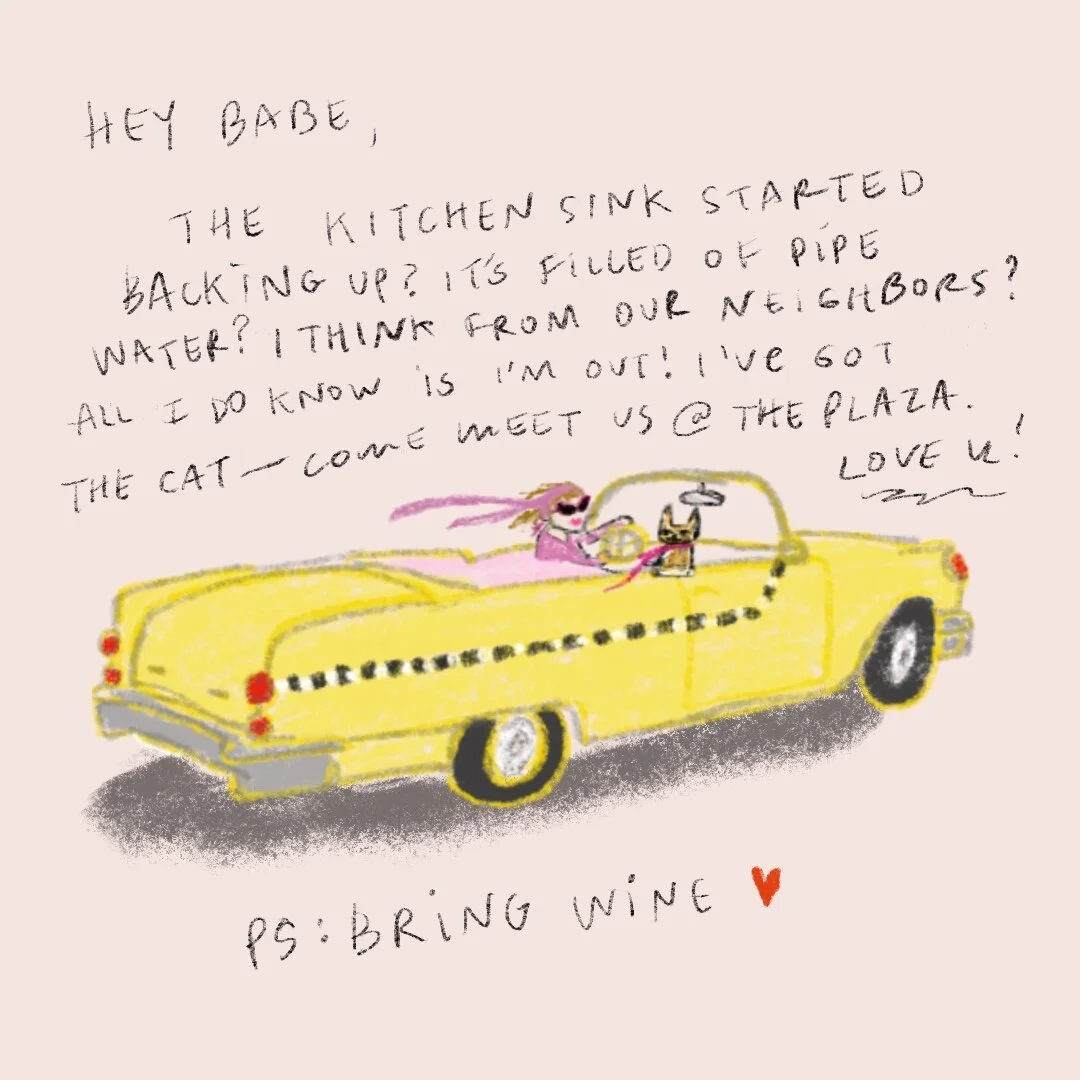 HEY BABE,
THE KITCHEN SINK STARTED
BACKING UP? IT'S FILLED OF PIPE
WATER? I THINK FROM OUR NEIGHBORS?
ALL I DO KNOW IS I'M OUT! I'VE GOT
THE CAT — COME MEET US @ THE PLAZA.
LOVE U!
PS: BRING WINE ♥